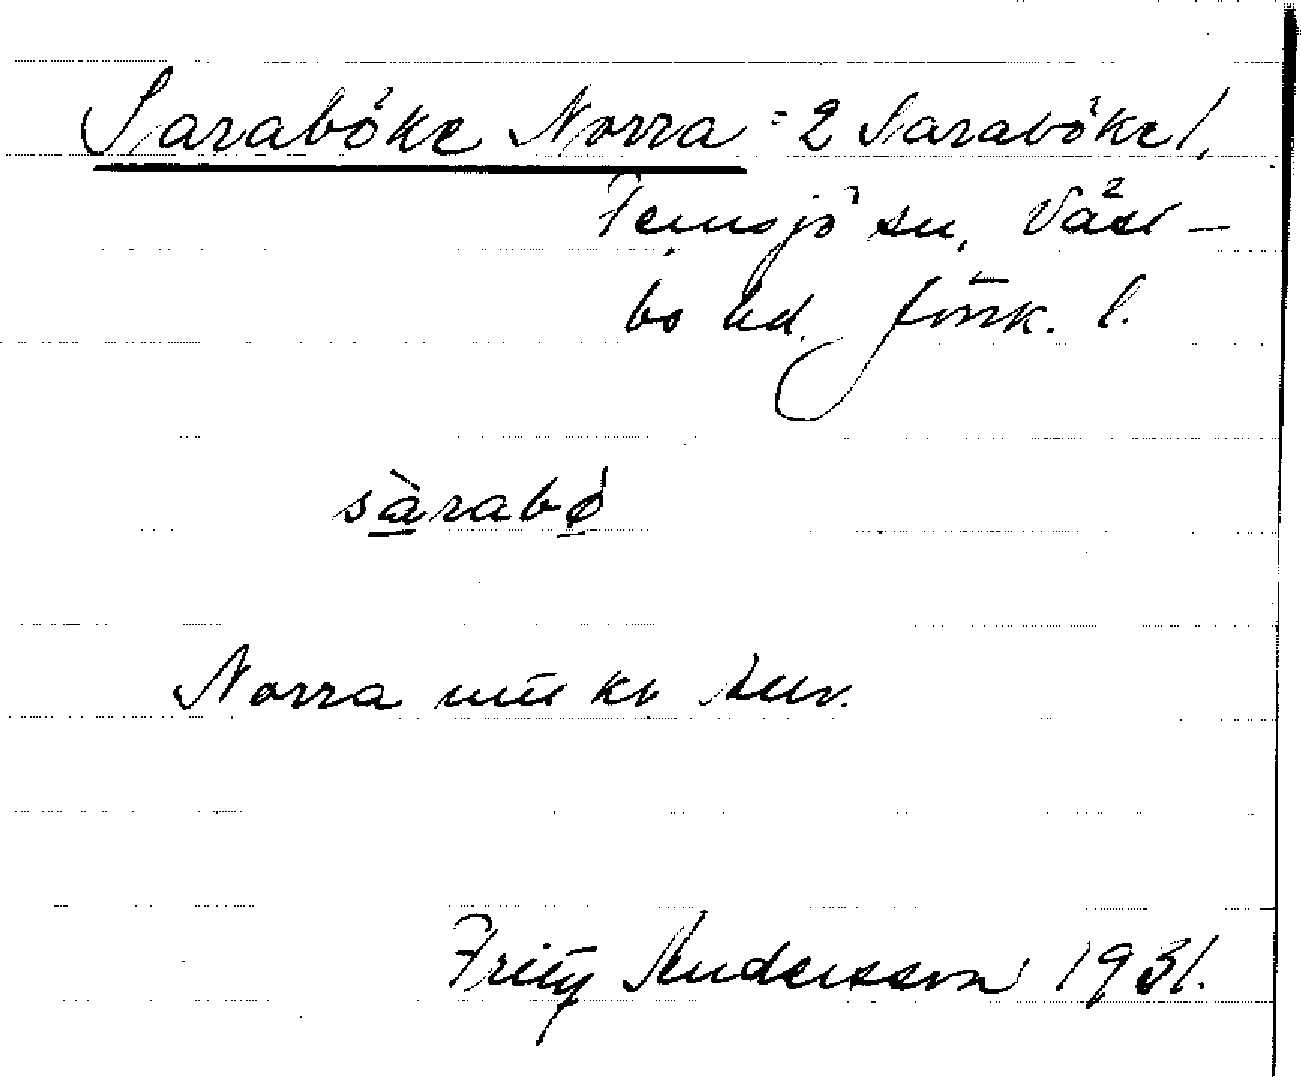 Saraböke Norra = 2 Saraböke 1.
Femsjö sn, Väst-
bo hd. Jönk. l.
sàrabø
Norra
Fritz Andersson 1931.